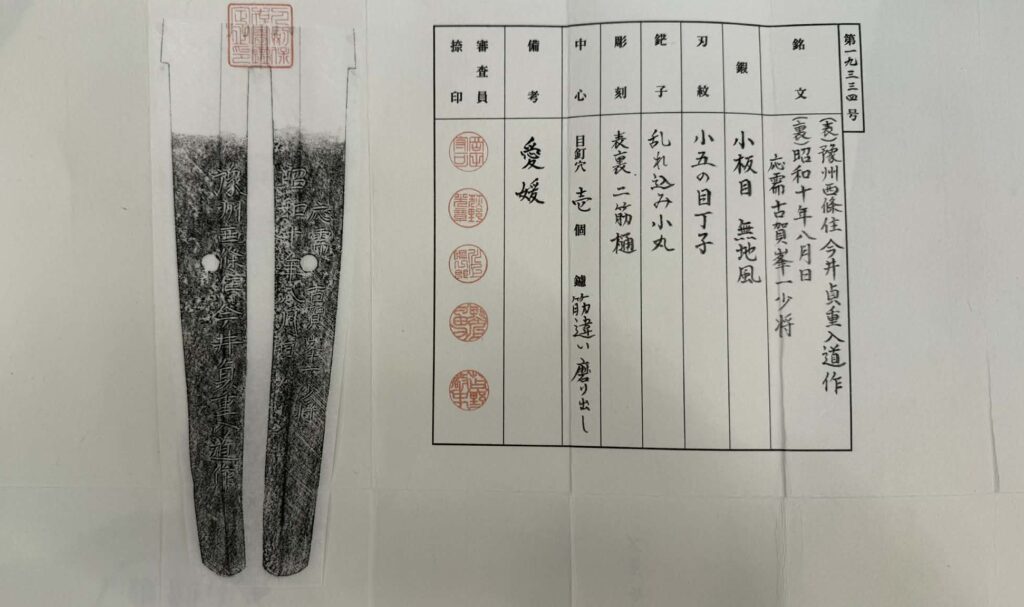 第一九三三四号
銘文
(表)豫州西條住今井貞重入道作
(裏)昭和十年八月日
応需古賀峯一少将
鍛
小板目 無地風
刃紋
小五の目丁子
鋩子
乱れ込み小丸
彫刻
表裏、二筋樋
中心
目釘穴 壱個 鑢 筋違い磨り出し
備考
愛媛
審査員
捺印
豫州西條住今井貞重入道作